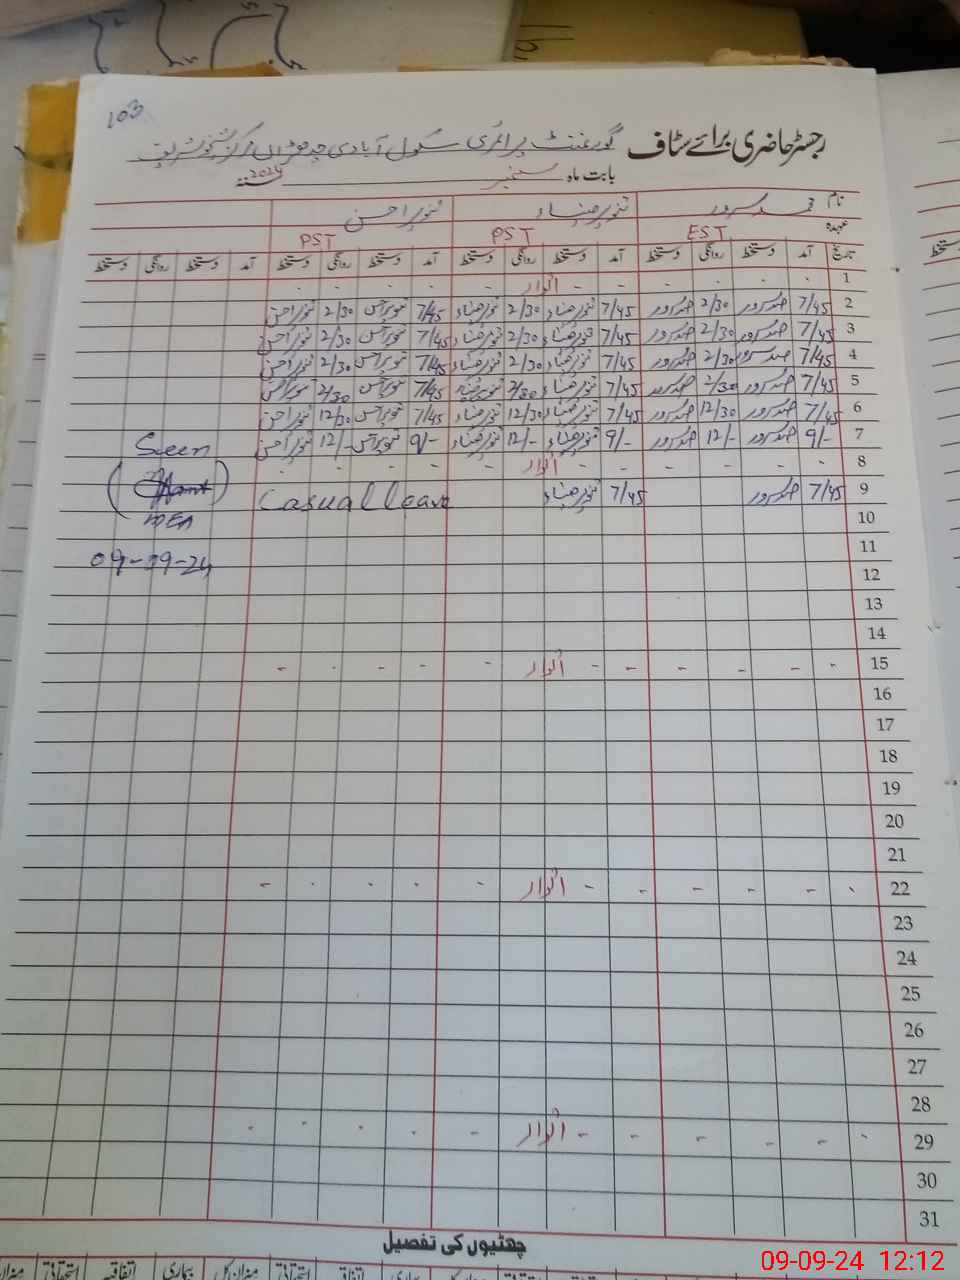 103
رجسٹر حاضری برائے سٹاف گورنمنٹ پرائمری سکول آبادی
بابت ماہ ستمبر 2024
نام محمد سرور تنویر ضیاء تنویر احسن
عہدہ EST PST PST
تاریخ آمد دستخط روانگی دستخط آمد دستخط روانگی دستخط آمد دستخط روانگی دستخط آمد دستخط روانگی دستخط
1 - - - - - - اتوار - - - -
2 7/45 2/30 7/45 تنویر ضیاء 2/30 تنویر ضیاء 7/45 تنویر احسن 2/30 تنویر احسن
3 7/45 2/30 7/45 تنویر ضیاء 2/30 تنویر ضیاء 7/45 تنویر احسن 2/30 تنویر احسن
4 7/45 2/30 7/45 تنویر ضیاء 2/30 تنویر ضیاء 7/45 تنویر احسن 2/30 تنویر احسن
5 7/45 2/30 7/45 تنویر ضیاء 2/30 تنویر ضیاء 7/45 تنویر احسن 2/30 تنویر احسن
6 7/45 12/30 7/45 تنویر ضیاء 12/30 تنویر ضیاء 7/45 تنویر احسن 12/30 تنویر احسن
7 9/- 12/- 9/- تنویر ضیاء 12/- تنویر ضیاء 9/- تنویر احسن 12/- تنویر احسن
Seen
8 - - - - - - اتوار - - - -
9 7/45 7/45 تنویر ضیاء Casual leave
10
11
09-09-24
12
13
14
15 - - - - - - اتوار - - - - -
16
17
18
19
20
21
22 - - - - - - اتوار - - - - -
23
24
25
26
27
28
29 - - - - - - اتوار - - - - -
30
31
چھٹیوں کی تفصیل
میزان کل استحقاقی اتفاقیہ بیماری میزان کل استحقاقی اتفاقیہ بیماری
09-09-24 12:12